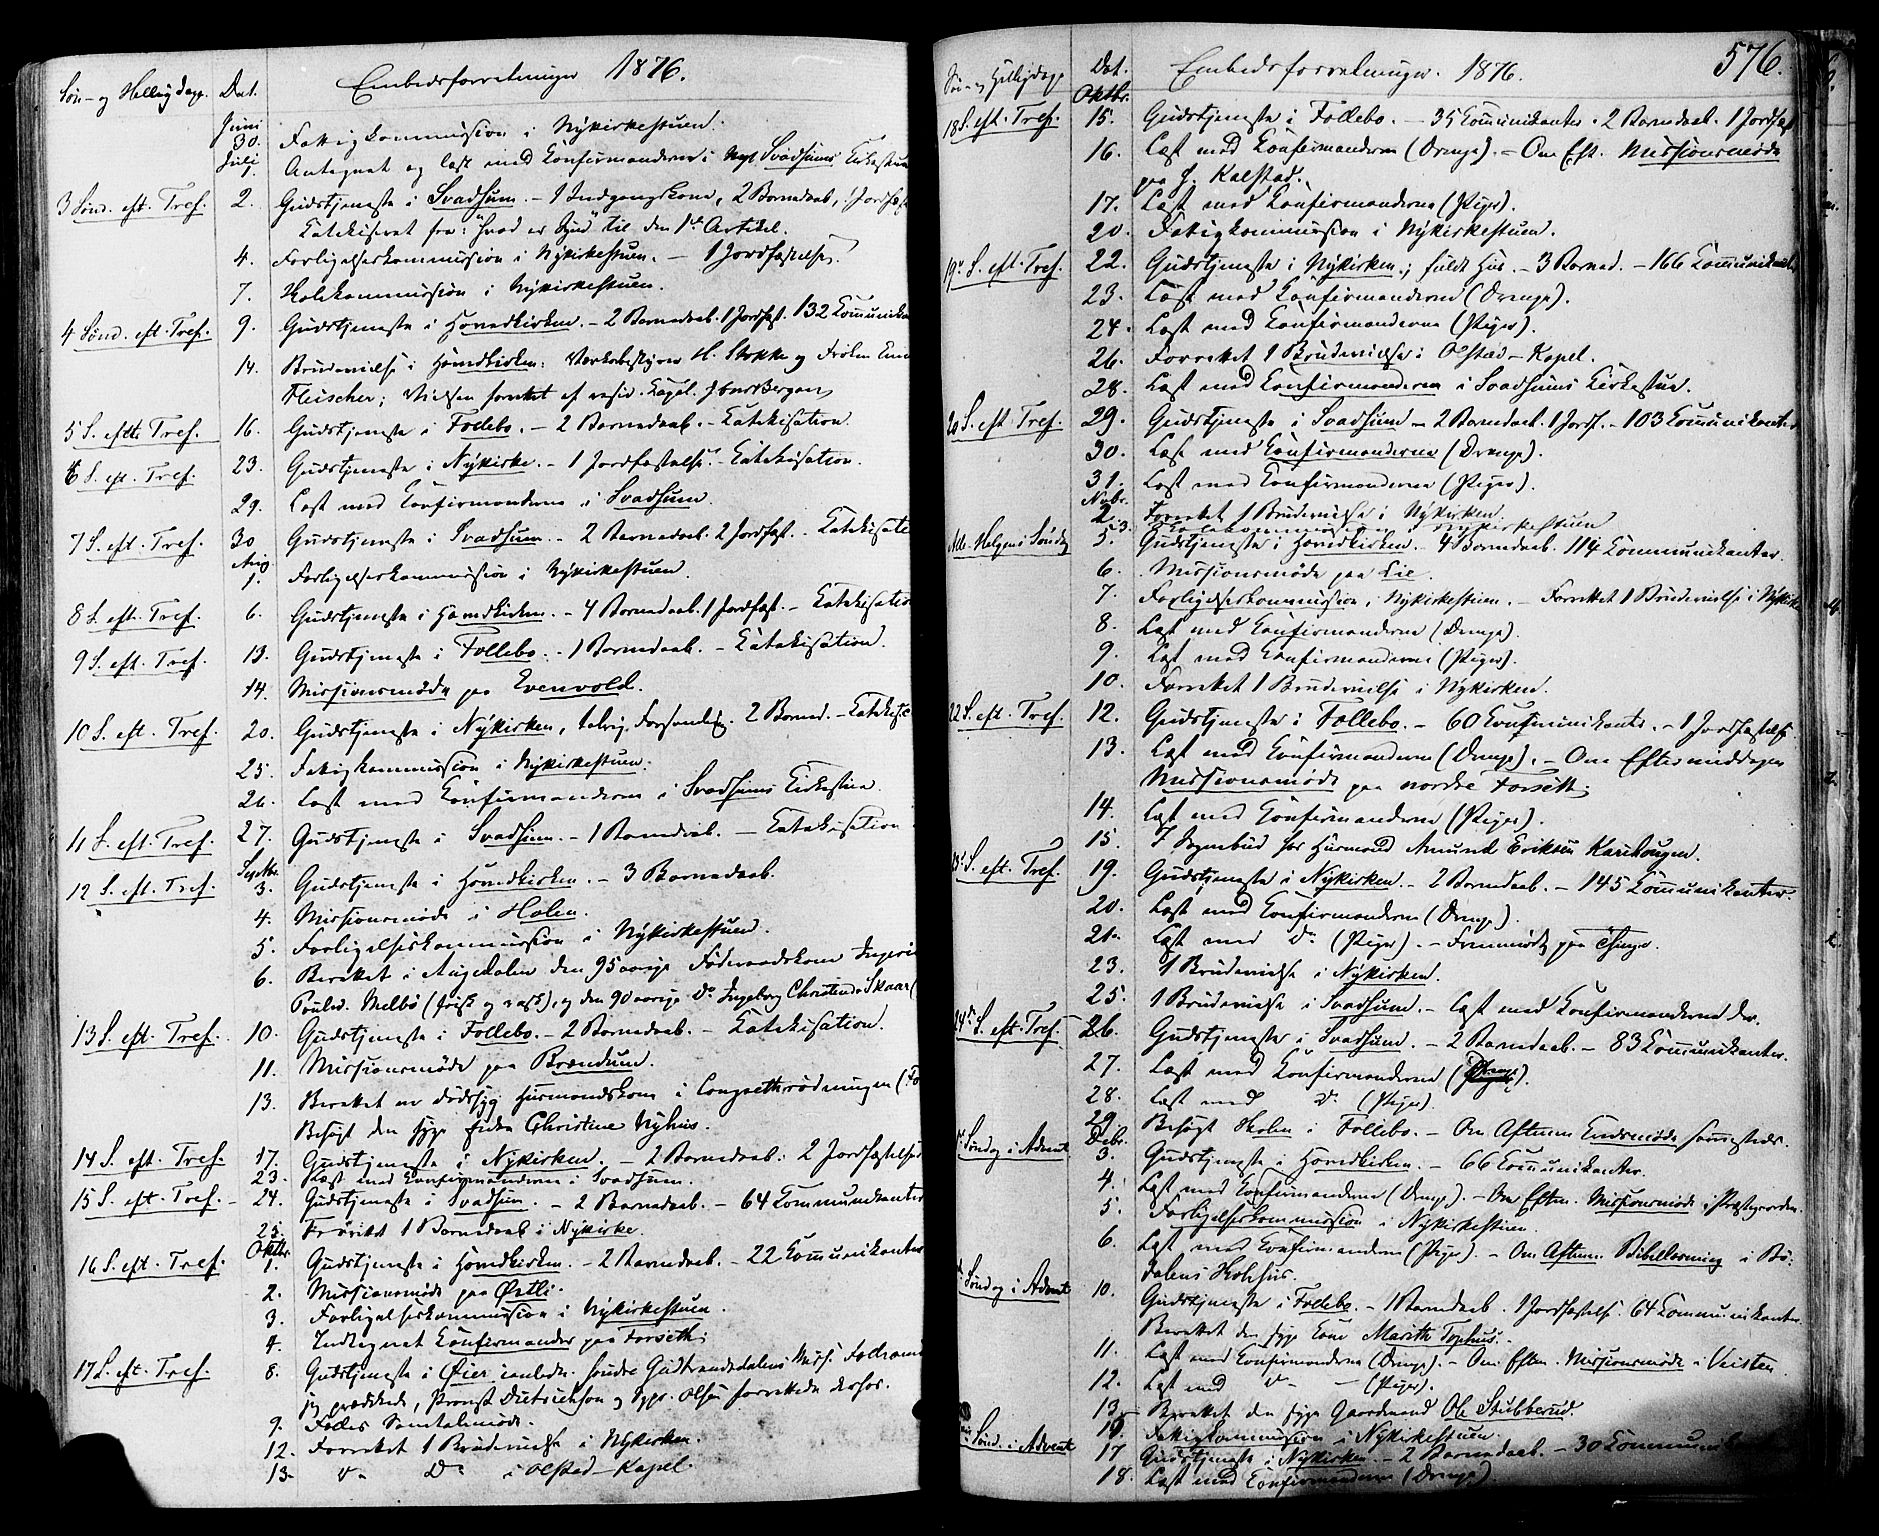 Søn- og Hellig dage. Dat. Embedsforretninger 1876.
Juni
30. Fattigkommission i Nykirkestuen.
Julj Antegnet og læst med Konfirmanderne i Svadsums Kirkestue
3 Sønd. eft. Tref. 2. Gudstjeneste i Svadsum. - 1 Indgangskone, 2 Barnedaab, 1 Jordfæst
Katekiseret fra: "Hvad er Gud" til den 1ste Artikel.
4. Forligelseskommission i Nykirkestuen. - 1 Jordfæstelse.
7. Skolekommission i Nykirkestuen.
4 Sønd. eft. Tref. 9. Gudstjeneste i Hovedkirken. - 2 Barnedaab. 1 Jordfæst. 132 Kommunika
14. Brudevielse i Hovedkirken: Værksbestyrer H. Stokke og Frøken Em
Fleischer; Vielsen forrettet af resid. Kapel. Jbergan
5 S. efth Tref. 16. Gudstjeneste i Follebo. - 2 Barnedaab. - Katekisation.
6 S. eft. Tref. 23. Gudstjeneste i Nykirke. - 1 Jordfæstelse. - Katekisation.
29. Læst med Konfirmanderne i Svadsum.
7 S. eft. Tref. 30 Gudstjeneste i Svadsum. - 2 Barnedaab. 2 Jordfæst. - Katekisatio
Aug.
1. Forligelseskommission i Nykirkestuen.
8 S. eft. Tref. 6. Gudstjeneste i Hovedkirken. - 4 Barnedaab. 1 Jordfæst. - Katekisation
9 S. eft. Tref. 13. Gudstjeneste i Follebo. - 1 Barnedaab. - Katekisation.
14. Missionsmøde paa Evenvold.
10 S. eft. Tref. 20. Gudstjeneste i Nykirken, talrig Forsamlig. 2 Barned. - Katekise
25. Fattigkommission i Nykirkestuen.
26. Læst med Konfirmanderne i Svadsums Kirkestue.
11 S. eft. Tref. 27. Gudstjeneste i Svadsum. - 1 Barnedaab. - Katekisation.
Septbr.
12 S. eft. Tref. 3. Gudstjeneste i Hovedkirken. - 3 Barnedaab.
4. Missionsmøde i Holen.
5. Forligelseskommission i Nykirkestuen.
6. Berettet i Augedalen den 95 aarige Føderaadskone
Poulsd. Melbö (frisk og rask), og den 90 aarige Do Ingeborg Christensd. Skaar (
13 S. eft. Tref. 10. Gudstjeneste i Follebo. - 2 Barnedaab. - Katekisation.
11. Missionsmøde paa Brændum.
13. Berettet en dødssyg Husmandskone i (Fo
Besøgt den syge Christine Nyhus.
14 S. eft. Tref. 17. Gudstjeneste i Nykirken. - 2 Barnedaab: 2 Jordfæstelser
23. Læst med Konfirmanderne i Svadsum.
15 S. eft. Tref. 24. Gudstjeneste i Svadsum. - 2 Barnedaab. - 64 Kommunikanter
25. Forrettet 1 Barnedaab i Nykirke.
Oktbr.
16 S. eft. Tref. 1. Gudstjeneste i Hovedkirken. - 2 Barnedaab. - 22 Kommunikanter
2. Missionsmøde paa Østli.
3. Forligelseskommission i Nykirkestuen.
4. Indtegnet Konfirmander paa Forseth.
17 S. eft. Tref. 8. Gudstjeneste i Øier i anledn. søndre Gudbrandsdalens Miss. Fodrame
jeg prædikede, Provst Dietrichson og Olsen forrettede
9. Fælles Samtalemøde.
12. Forrettet 1 Brudevielse i Nykirken.
13. do Do i Olstad-Kapel.
Søn- og Helligdage Dat. Embedsforretninger. 1876. 576.
Oktbr.
18 S. eft. Tref. 15. Gudstjeneste i Follebo. - 35 Kommunikanter. 2 Barnedaab. 1 Jordfæst
16. Læst med Konfirmanderne (Drenge). - Om Eft. Missionsmøde
paa J. Kalstad.
17. Læst med Konfirmanderne (Piger).
20. Fattigkommission i Nykirkestuen.
19. S. eft. Tref. 22. Gudstjeneste i Nykirken; fuldt Hus. - 3 Barned. - 166 Kommunikanter
23. Læst med Konfirmanderne (Drenge).
24. Læst med Konfirmanderne (Piger).
26. Forrettet 1 Brudevielse i Olstad-Kapel.
28. Læst med Konfirmanderne i Svadsums Kirkestue.
20 S. eft. Tref. 29. Gudstjeneste i Svadsum - 2 Barnedaab. 1 Jordf. - 103 Kommunikanter
30. Læst med Konfirmanderne (Drenge).
31. Læst med Konfirmanderne (Piger).
Nvbr.
2. Forrettet 1 Brudevielse i Nykirken.
3. Skolekommission i Nykirkestuen
Alle Helgens Søndag 5. Gudstjeneste i Hovedkirken. 4 Barnedaab. 114 Kommunikanter.
6. Missionsmøde paa Lie.
7. Forligelseskommission i Nykirkestuen. - Forrettet 1 Brudevielse i Nykirke
8. Læst med Konfirmanderne (Drenge).
9. Læst med Konfirmanderne (Piger).
10. Forrettet 1 Brudevielse i Nykirken.
22 S. eft. Tref. 12. Gudstjeneste i Follebo. - 60 Kommunikanter. - 1 Jordfæstelse.
13. Læst med Konfirmanderne (Drenge). - Om Eftermiddagen
Missionsmøde paa nordre Forseth.
14. Læst med Konfirmanderne (Piger).
15. I Sognebud hos Husmand Amund Eriksen Karihougen.
23. S. eft. Tref. 19. Gudstjeneste i Nykirken. - 2 Barnedaab. - 145 Kommunikanter.
20. Læst med Konfirmanderne (Drenge).
21. Læst med Do (Piger). - paa Thinge.
23. 1 Brudevielse i Nykirken.
25. 1 Brudevielse i Svadsum. - Læst med Konfirmanderne der.
24. S. eft. Tref. 26. Gudstjeneste i Svadsum. - 2 Barnedaab. - 83 Kommunikanter.
27. Læst med Konfirmanderne (Drenge).
28. Læst med Do (Piger).
29. Besøgt Skolen i Follebo. - Om Aftenen sammesteds.
Decbr.
1ste Søndag i Advent 3. Gudstjeneste i Hovedkirken. - 66 Kommunikanter.
4. Læst med Konfirmanderne (Drenge). - Om Eftm. Missionsmøde i Præstgaarden.
5. Forligelseskommission i Nykirkestuen.
6. Læst med Konfirmanderne (Piger). - Om Aftenen Bibellæsning i Bö-
dalens Skolehus.
Søndag i Advent 10. Gudstjeneste i Follebo. - 1 Barnedaab. 1 Jordfæstelse. 64 Kommunikanter.
Berettet den syge Kone Marith Tophus.
11. Læst med Konfirmanderne (Drenge). - Om Eften. Missionsmøde i Veisten
12. Læst med do (Piger).
13. Berettet den syge Gaardmand Ole Stubberud.
Fattigkommission i Nykirkestuen.
Sönd. i Advent 17 Gudstjeneste i Nykirken. - 2 Barnedaab. - 30 Kommuni
18. Læst med Konfirmanderne (Drenge)